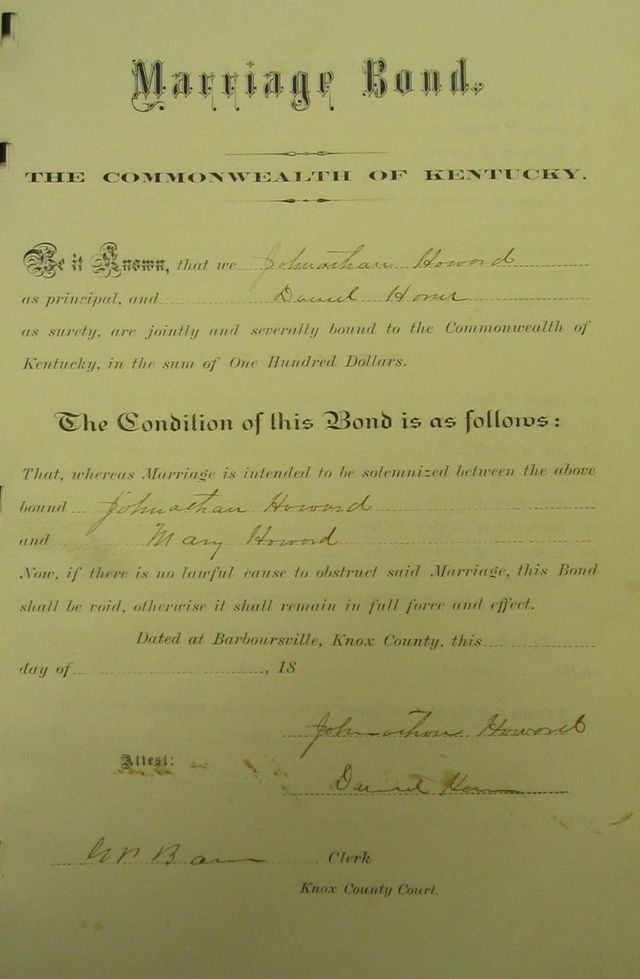 Marriage Bond.
THE COMMONWEALTH OF KENTUCKY.
Be it Known, that we Johnathan Howard
as principal, and Daniel
as surety, are jointly and severally bound to the Commonwealth of
Kentucky, in the sum of One Hundred Dollars.
The Condition of this Bond is as follows:
That, whereas Marriage is intended to be solemnized between the above
bound Johnathan Howard
and Mary Howard
Now, if there is no lawful cause to obstruct said Marriage, this Bond
shall be void, otherwise it shall remain in full force and effect.
Dated at Barboursville, Knox County, this
day of , 18
Johnathan Howard
Attest:
Daniel
Clerk
Knox County Court.